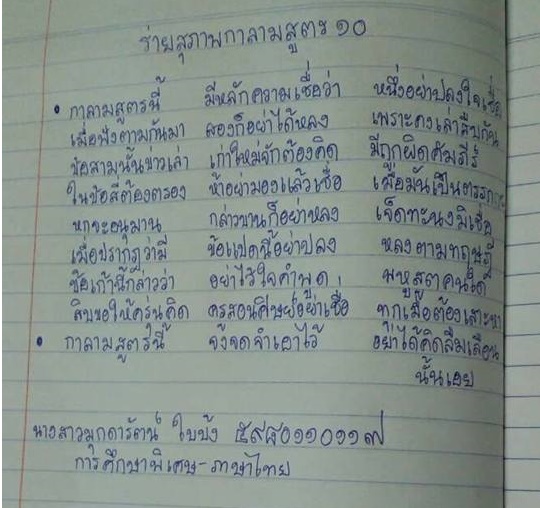 ร่ายสุภาพกาลามสูตร ๑๐
• กาลามสูตรนี้ มีหลักความเชื่อว่า หนึ่งอย่าปลงใจเชื่อ
เมื่อฟังตามกันมา สองก็อย่าได้หลง เพราะคงเล่าสืบกัน
ข้อสามนั้นข่าวเล่า เก่าใหม่จักต้องคิด มีถูกผิดคัมภีร์
ในข้อสี่ต้องตรอง ห้าอย่ามองแล้วเชื่อ เมื่อมันเป็นตรรกะ
หกจะอนุมาน กล่าวขานก็อย่าหลง เจ็ดทะนงมิเชื่อ
เมื่อปรากฏว่ามี ข้อแปดนี้อย่าปลง หลงตามทฤษฎี
ข้อเก้านี้กล่าวว่า อย่าไว้ใจคำพูด พหูสูตคนใด
สิบขอให้ครุ่นคิด ครูสอนศิษย์อย่าเชื่อ ทุกเมื่อต้องเสาะหา
• กาลามสูตรนี้ จงจดจำเอาไว้ อย่าได้คิดลืมเลือน
นั้นเอย
นางสาวมุกดารัตน์ ใบบัง ๕๙๘๐๑๑๐๑๑๗
การศึกษาพิเศษ-ภาษาไทย